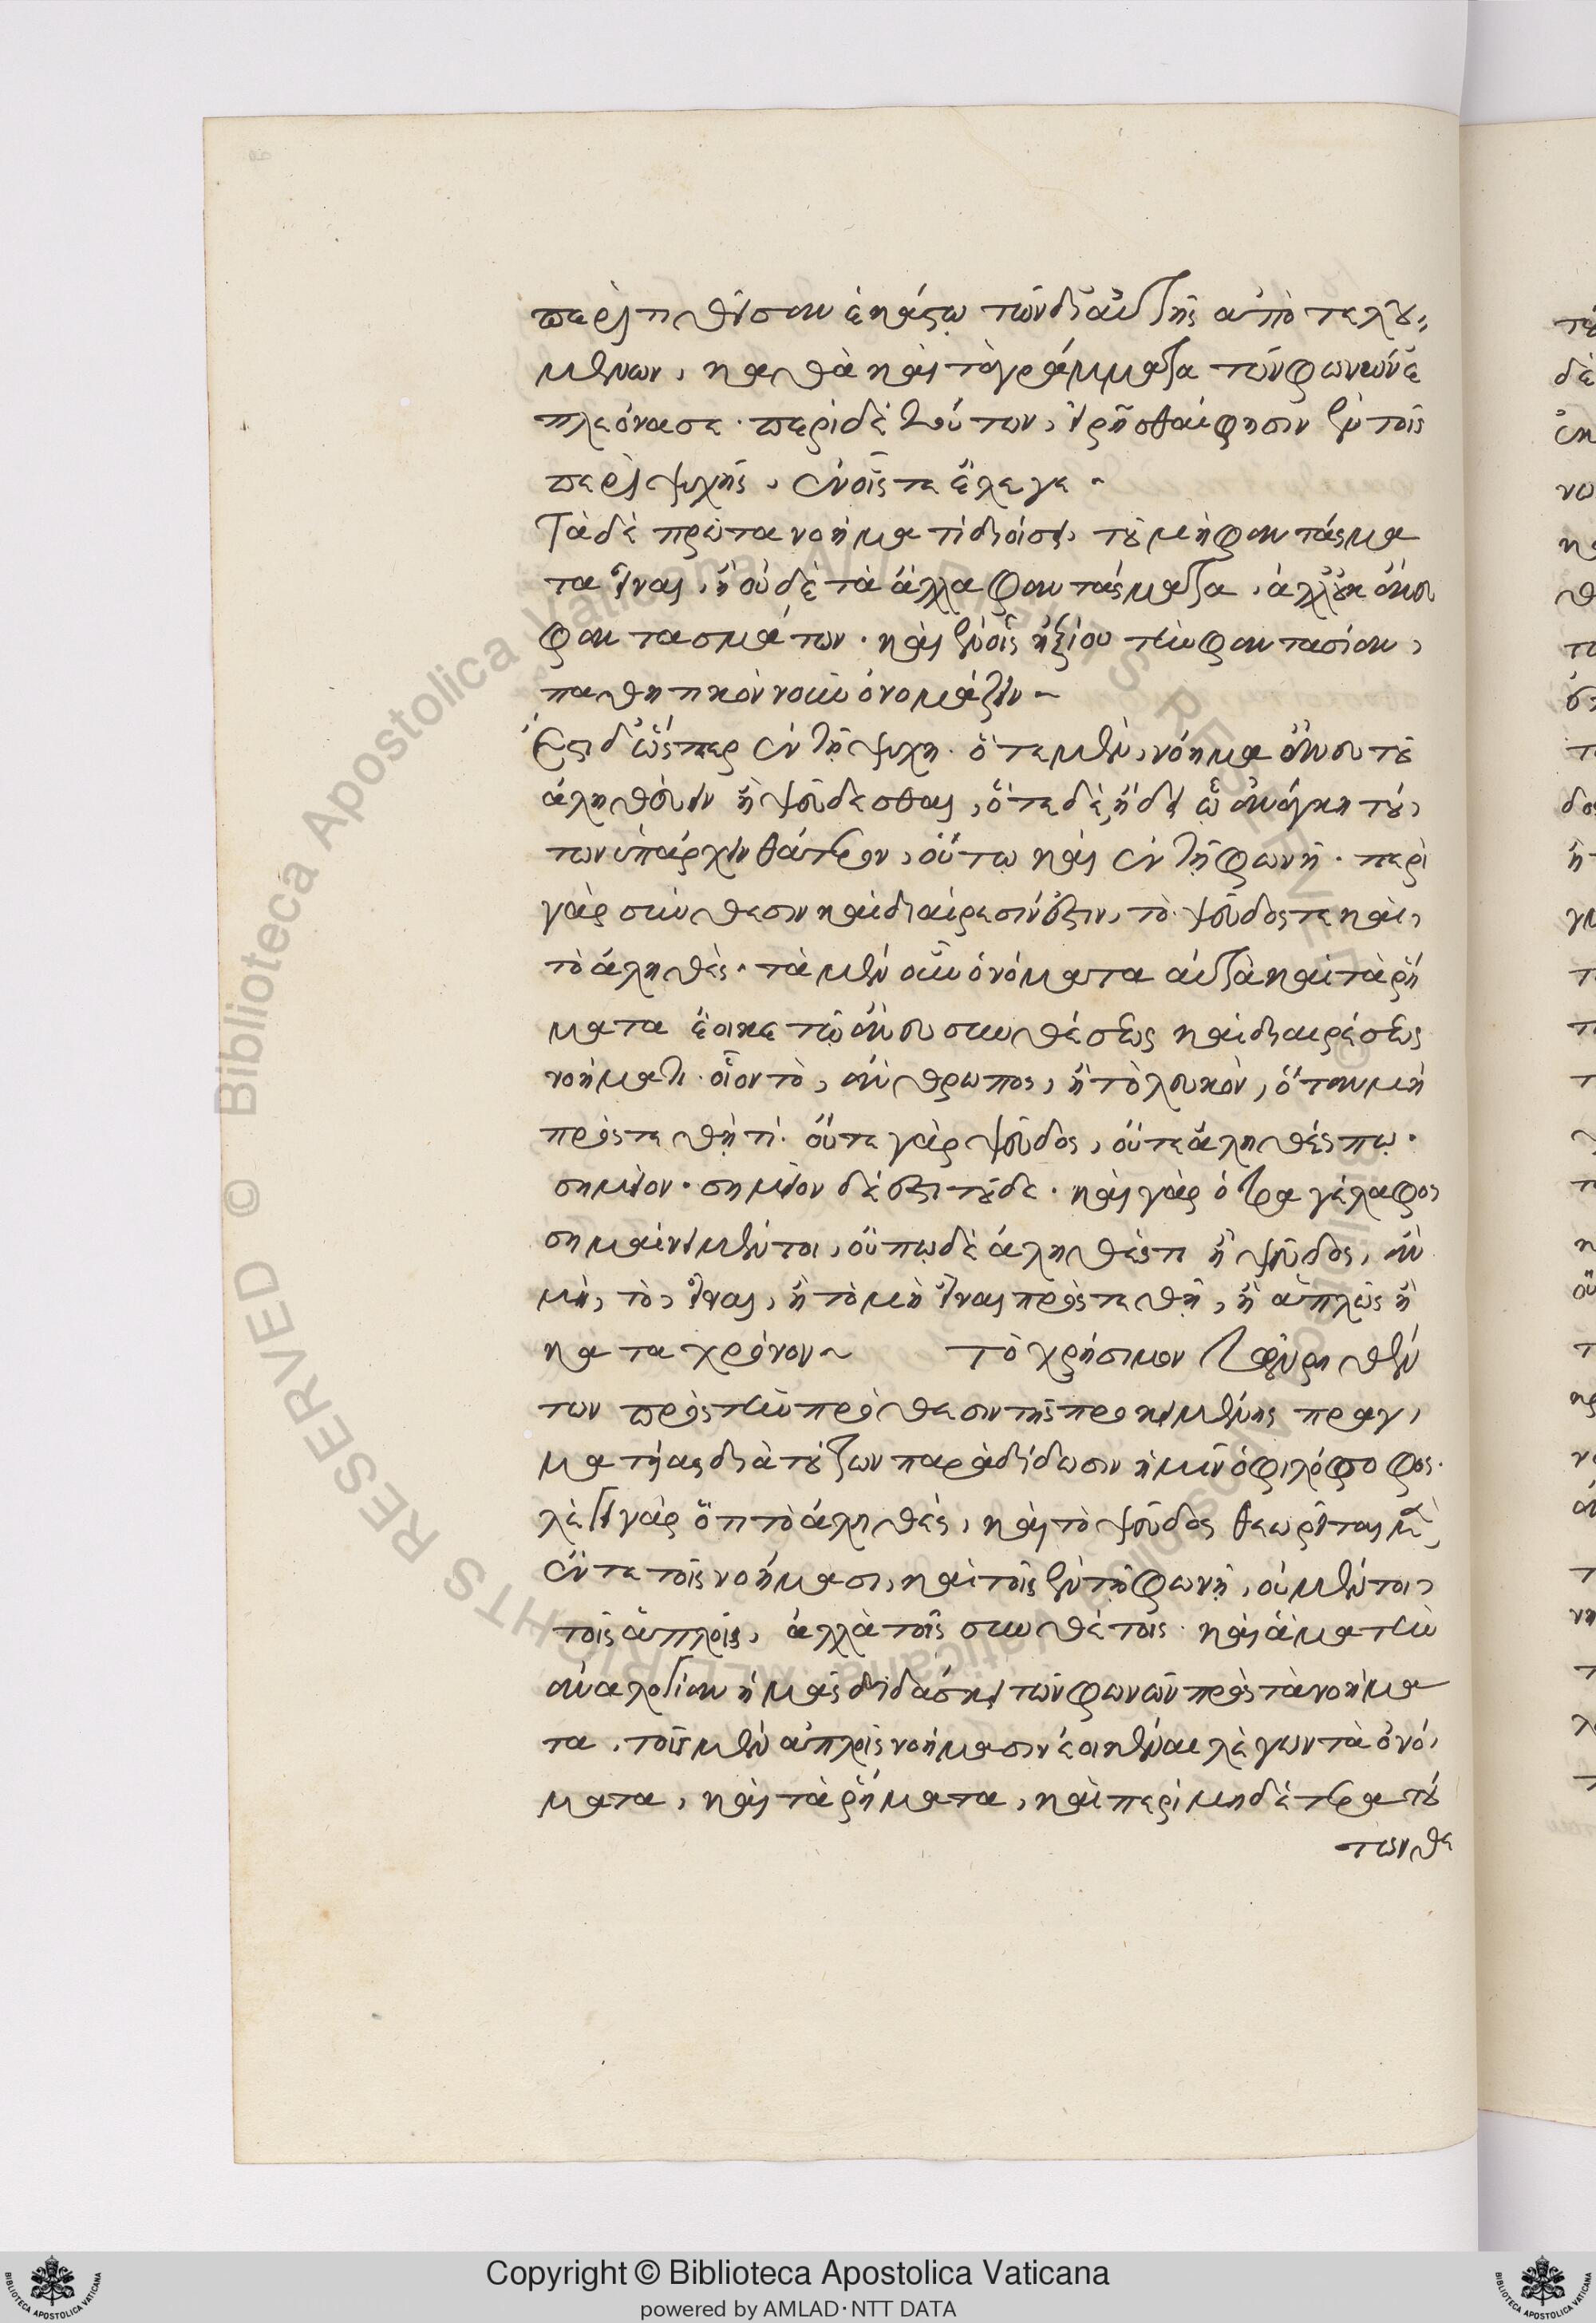 περιτιθεῖσαν ἑκάστῳ τῶν δι' αὐτῆς ἀποτελου=
μένων, καθὰ καὶ τὰ γράμματα τῶν φωνῶν ἐ
πλεόνασε. περὶ δὲ τούτων, εἰρῆσθαί φησιν ἐν τοῖς
περὶ ψυχῆς, ἐν οἷς τε ἔλεγε.
Τὰ δὲ πρῶτα νοήματα τί διοίσει, τοῦ μὴ φαντάσμα
τα εἶναι, ἢ οὐδὲ τὰ ἄλλα φαντάσματα, ἀλλ' οὐκ ἄνευ
φαντασμάτων. καὶ ἐν οἷς ἠξίου τὴν φαντασίαν,
παθητικὸν νοῦν ὀνομάζειν ~
Ἔστι δ' ὥσπερ ἐν τῇ ψυχῇ. ὁτὲ μὲν, νόημα ἄνευ τοῦ
ἀληθεύειν ἢ ψεύδεσθαι, ὁτὲ δὲ, ἤδη ᾧ ἀνάγκη τού,
των ὑπάρχειν θάτερον, οὕτω καὶ ἐν τῇ φωνῇ. περὶ
γὰρ σύνθεσιν καὶ διαίρεσίν ἐστιν, τὸ ψεῦδός τε καὶ,
τὸ ἀληθές. τὰ μὲν οὖν ὀνόματα αὐτὰ καὶ τὰ ῥή
ματα ἔοικε τῷ ἄνευ συνθέσεως καὶ διαιρέσεως
νοήματι. οἷον τὸ, ἄνθρωπος, ἢ τὸ λευκὸν, ὅταν μὴ
προστεθῇ τί. οὔτε γὰρ ψεῦδος, οὔτε ἀληθές πω.
σημεῖον. σημεῖον δέ ἐστι τοῦδε. καὶ γὰρ ὁ τραγέλαφος
σημαίνει μέν τοι, οὔπω δὲ ἀληθές τι ἢ ψεῦδος, ἂν
μὴ, τὸ, εἶναι, ἢ τὸ μὴ εἶναι προστεθῇ, ἢ ἁπλῶς ἢ
κατα χρόνον ~ Τὸ χρήσιμον τῶν εὑρηθέν
των πρὸς τὴν πρόθεσιν τῆς προκειμένης πραγ,
ματείας διὰ τούτων παραδίδωσιν ἡμῖν ὁ φιλόσοφος.
λέγει γὰρ ὅτι τὸ ἀληθές, καὶ τὸ ψεῦδος θεωρεῖται μὲν
ἔν τε τοῖς νοήμασι, καὶ τοῖς ἐν τῇ φωνῇ, οὐ μέν τοι,
τοῖς ἁπλοῖς, ἀλλὰ τοῖς συνθέτοις. καὶ ἅμα τὴν
ἀναλογίαν ἡμᾶς διδάσκει τῶν φωνῶν πρὸς τὰ νοήμα
τα, τοῖς μὲν ἁπλοῖς νοήμασιν ἐοικέναι λέγων τὰ ὀνό,
ματα, καὶ τὰ ῥήματα, καὶ περὶ μηδέτερα τού
των θε
Copyright © Biblioteca Apostolica Vaticana
powered by AMLAD·NTT DATA